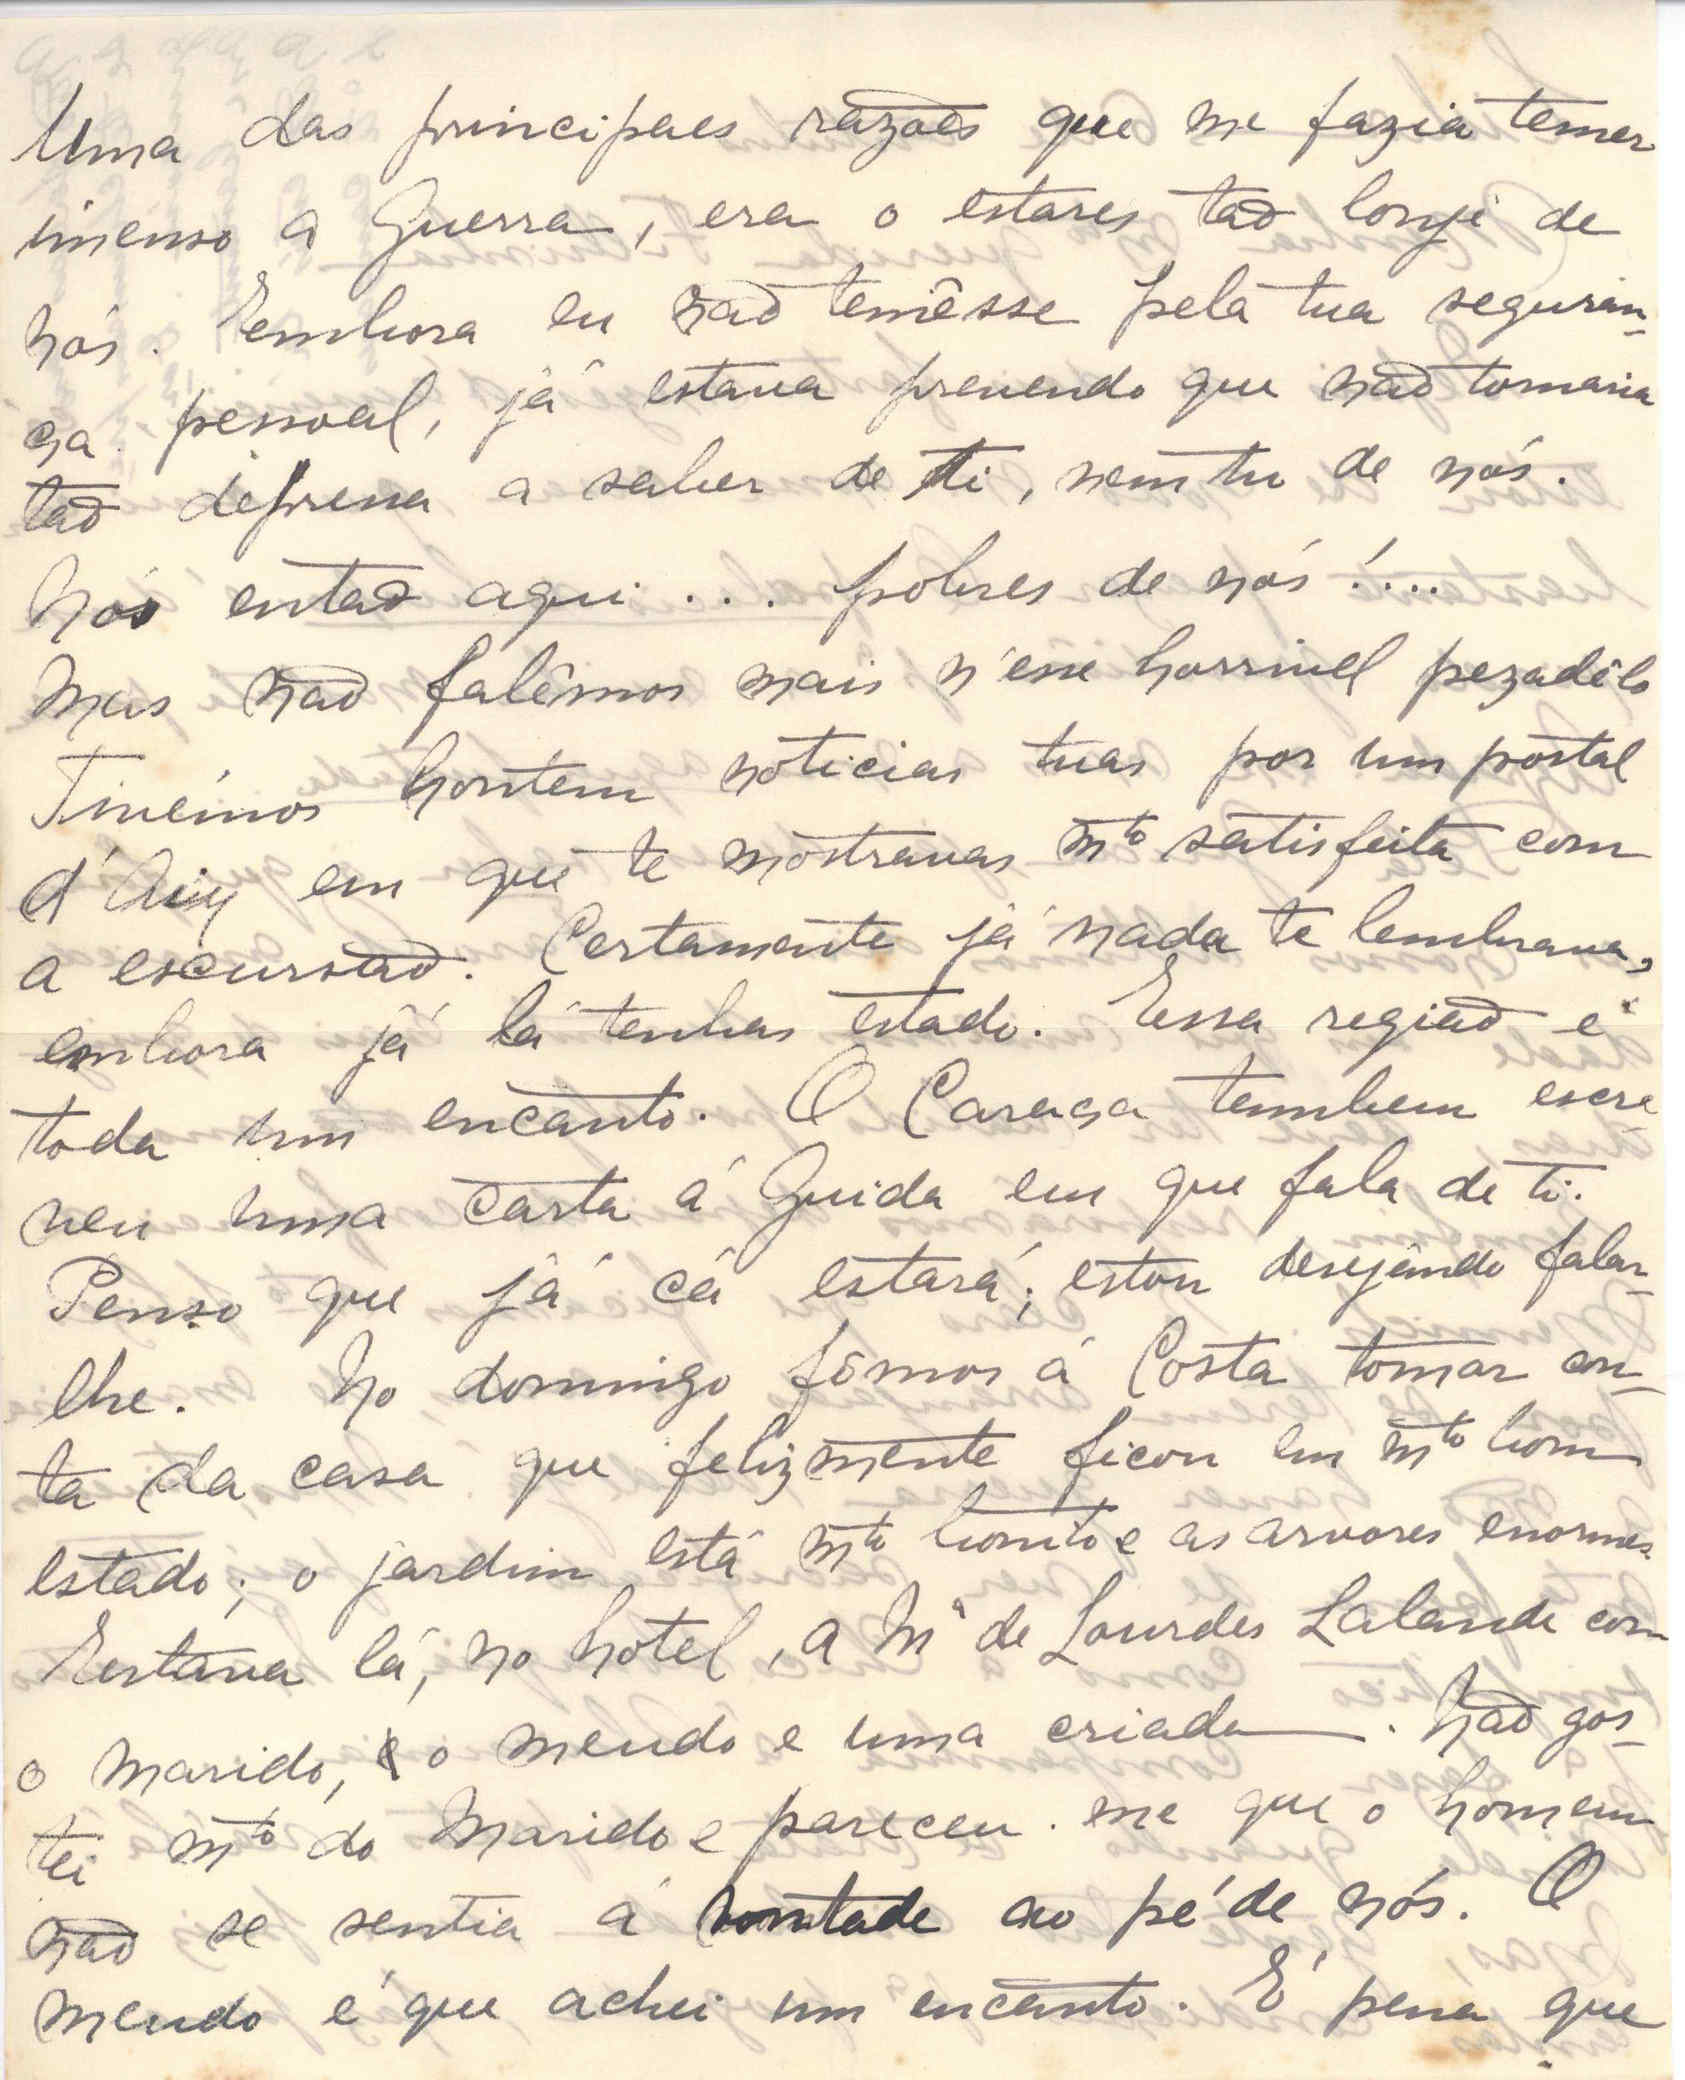 Uma das principaes razoẽs que me fazia temer
imenso a Guerra, era o estares taõ longe de
nós. Embora eu naõ temêsse pela tua seguran-
ça pessoal, já estava prevendo que naõ tornaria
taõ depressa a saber de ti, nem tu de nós.
Nós entaõ aqui ... pobres de nós!....
Mas naõ falêmos mais n'esse horrivel pezadêlo
Tivémos hontem noticias tuas por um postal
d'Aix em que te mostravas mto satisfeita com
a escursaõ. Certamente já nada te lembrava,
embora já lá tenhas estado. Essa regiaõ é
toda um encanto. O Caraça tambem escre-
veu uma carta á Guida em que fala de ti.
Penso que já cá estará; estou desejando falar-
lhe. No domingo fômos á Costa tomar con-
ta da casa que felizmente ficou em mto bom
estado; o jardim está mto bonito e as arvores enormes.
Estava lá, no hotel, a Ma de Lourdes Lalande com
o marido, o mendo e uma criada. Naõ gos-
tei mto do marido e pareceu-me que o homem
naõ se sentia á vontade ao pé de nós. O
mendo é que achei um encanto. É pena que